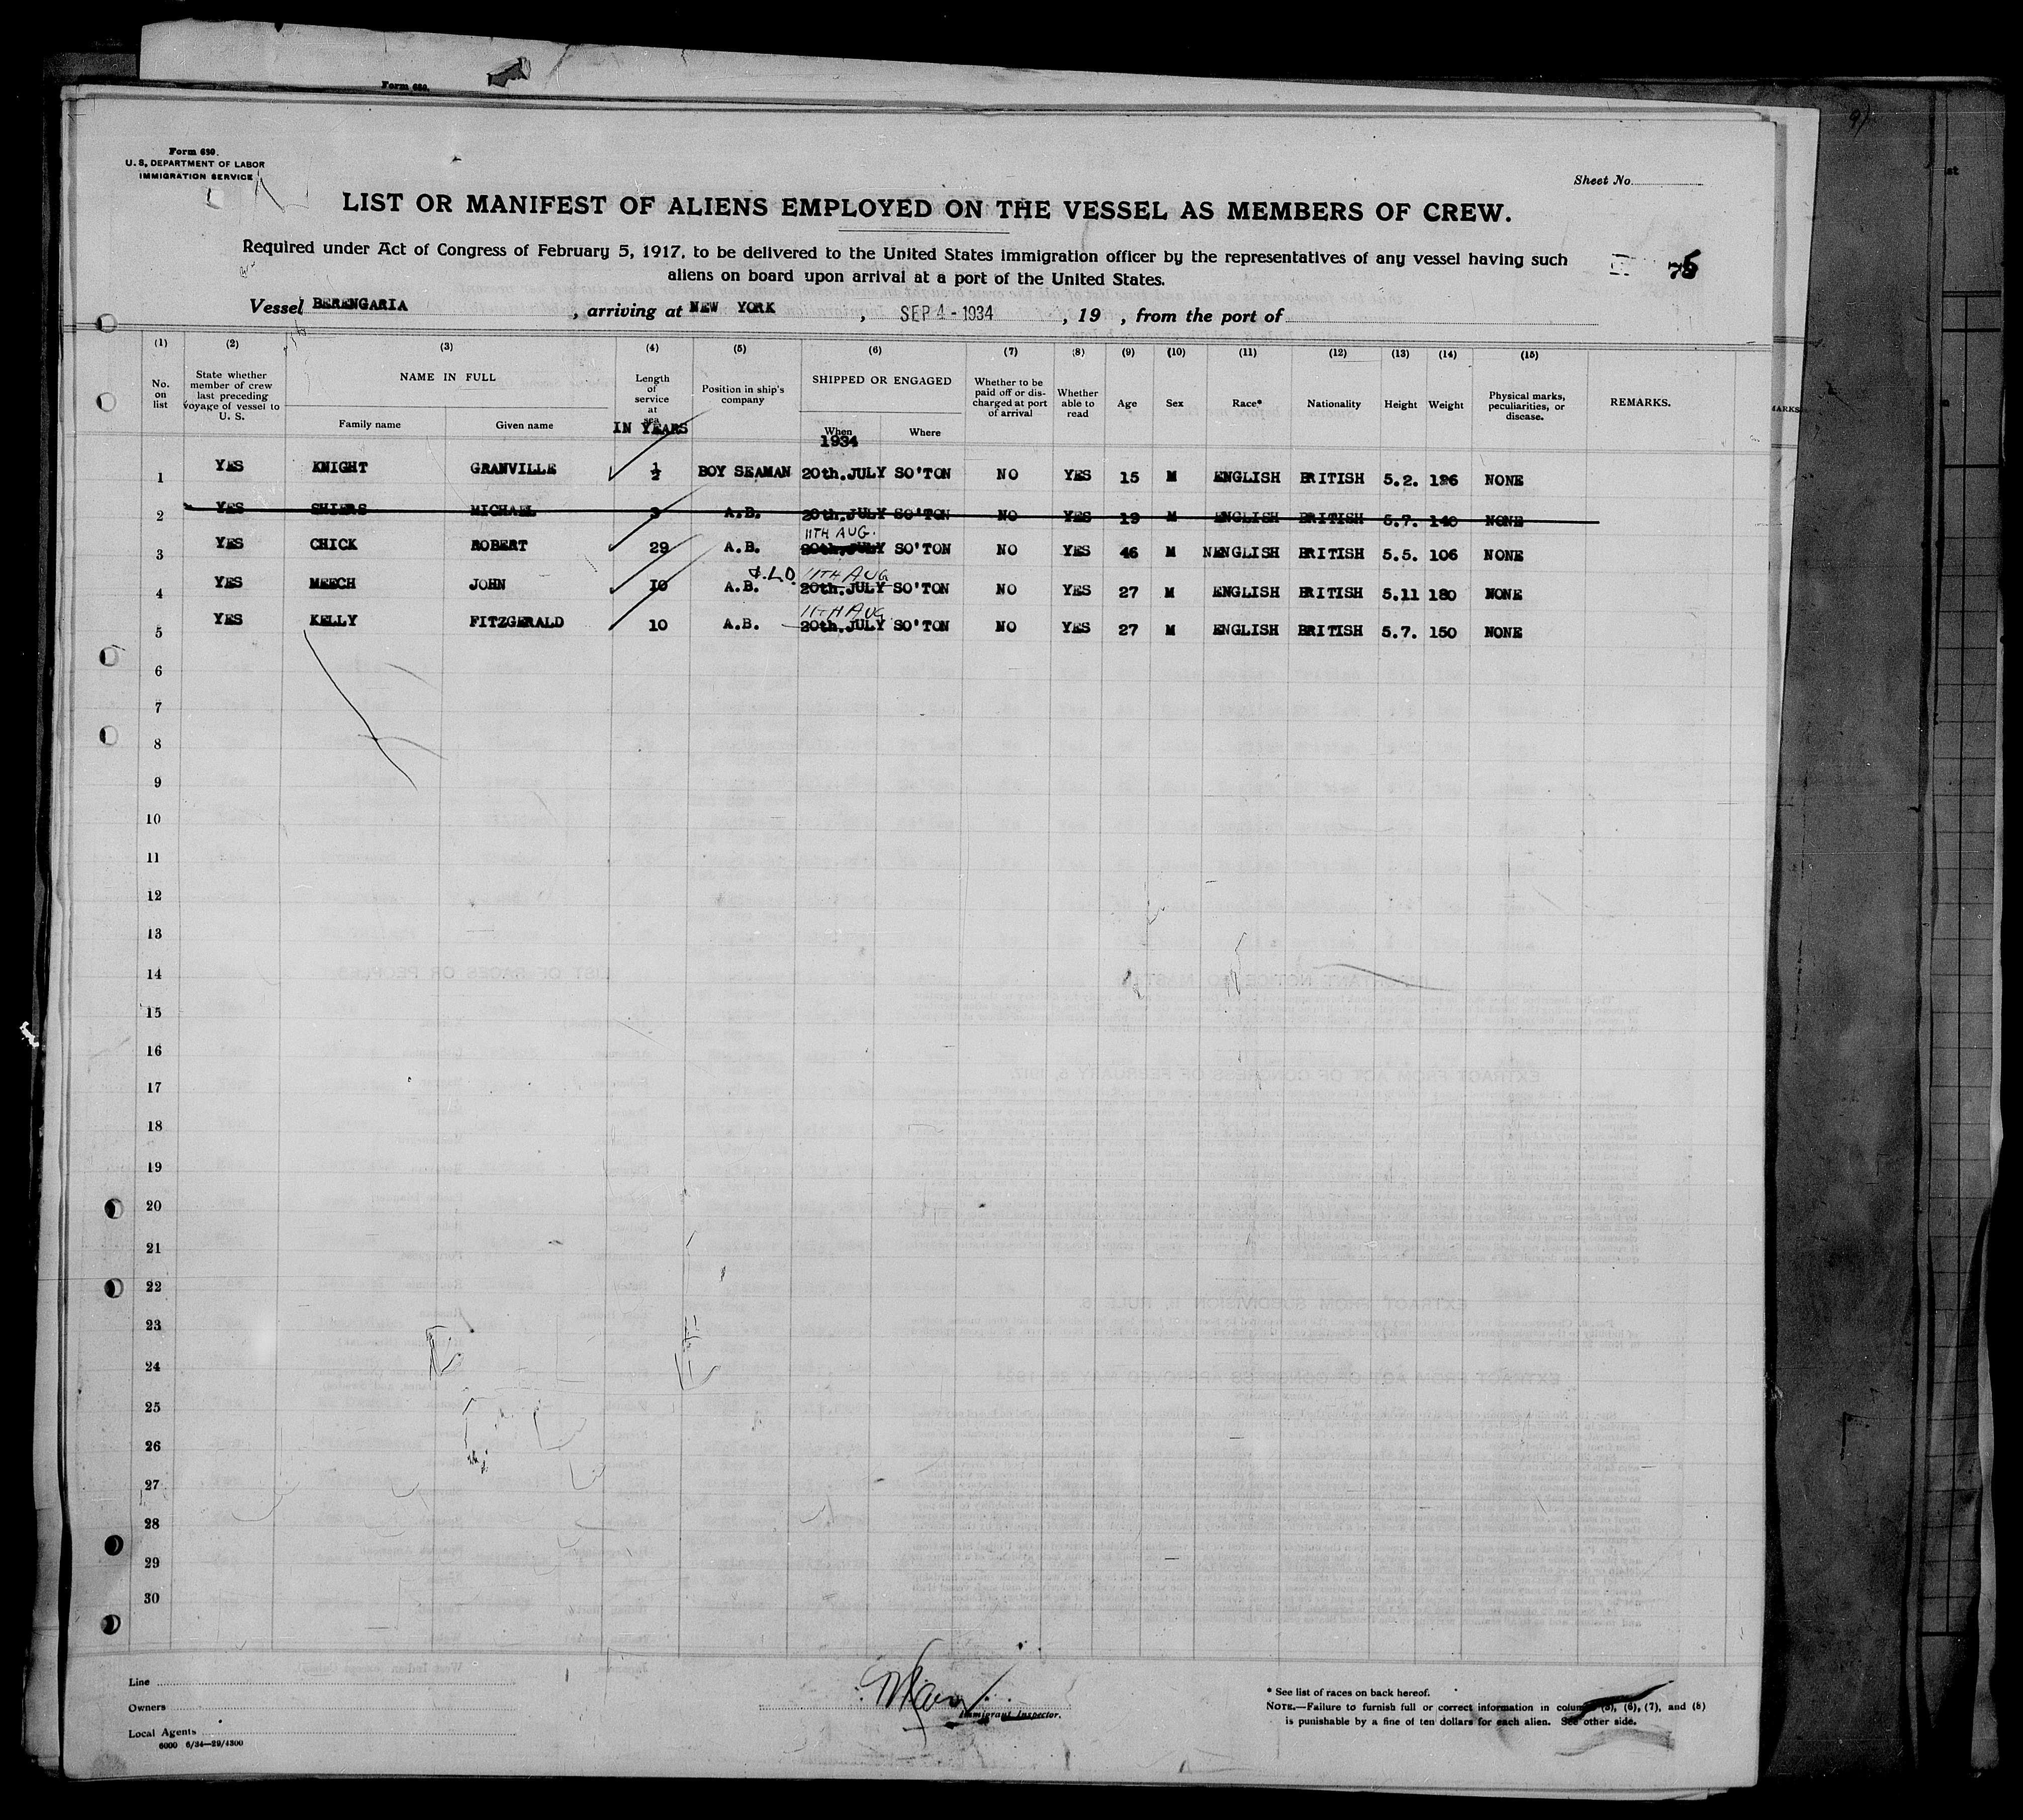 Form 680.
Form 680.
U. S. DEPARTMENT OF LABOR
IMMIGRATION SERVICE
Sheet No.
LIST OR MANIFEST OF ALIENS EMPLOYED ON THE VESSEL AS MEMBERS OF CREW.
Required under Act of Congress of February 5, 1917, to be delivered to the United States immigration officer by the representatives of any vessel having such
aliens on board upon arrival at a port of the United States.
Vessel BERENGARIA , arriving at NEW YORK , SEP 4 - 1934 , 19 , from the port of
(1) (2) (3) (4) (5) (6) (7) (8) (9) (10) (11) (12) (13) (14) (15)
No. on list State whether member of crew last preceding voyage of vessel to U. S. NAME IN FULL Family name Given name Length of service at sea IN YEARS Position in ship's company SHIPPED OR ENGAGED When 1934 Where Whether to be paid off or discharged at port of arrival Whether able to read Age Sex Race* Nationality Height Weight Physical marks, peculiarities, or disease. REMARKS.
1 YES KNIGHT GRANVILLE ½ BOY SEAMAN 20th.JULY SO'TON NO YES 15 M ENGLISH BRITISH 5.2. 126 NONE
2 YES SHIERS MICHAEL 3 A.B. 20th.JULY SO'TON NO YES 19 M ENGLISH BRITISH 5.7. 140 NONE
11TH AUG.
3 YES CHICK ROBERT 29 A.B. 20th.JULY SO'TON NO YES 46 M NENGLISH BRITISH 5.5. 106 NONE
11TH AUG
4 YES MEECH JOHN 10 A.B. 20th.JULY SO'TON NO YES 27 M ENGLISH BRITISH 5.11 180 NONE
11TH AUG
5 YES KELLY FITZGERALD 10 A.B. 20th.JULY SO'TON NO YES 27 M ENGLISH BRITISH 5.7. 150 NONE
6
7
8
9
10
11
12
13
14
15
16
17
18
19
20
21
22
23
24
25
26
27
28
29
30
Line
Owners
Local Agents
6000 6/34—29/4300
Immigrant Inspector.
* See list of races on back hereof.
NOTE.—Failure to furnish full or correct information in columns (5), (6), (7), and (8)
is punishable by a fine of ten dollars for each alien. See other side.